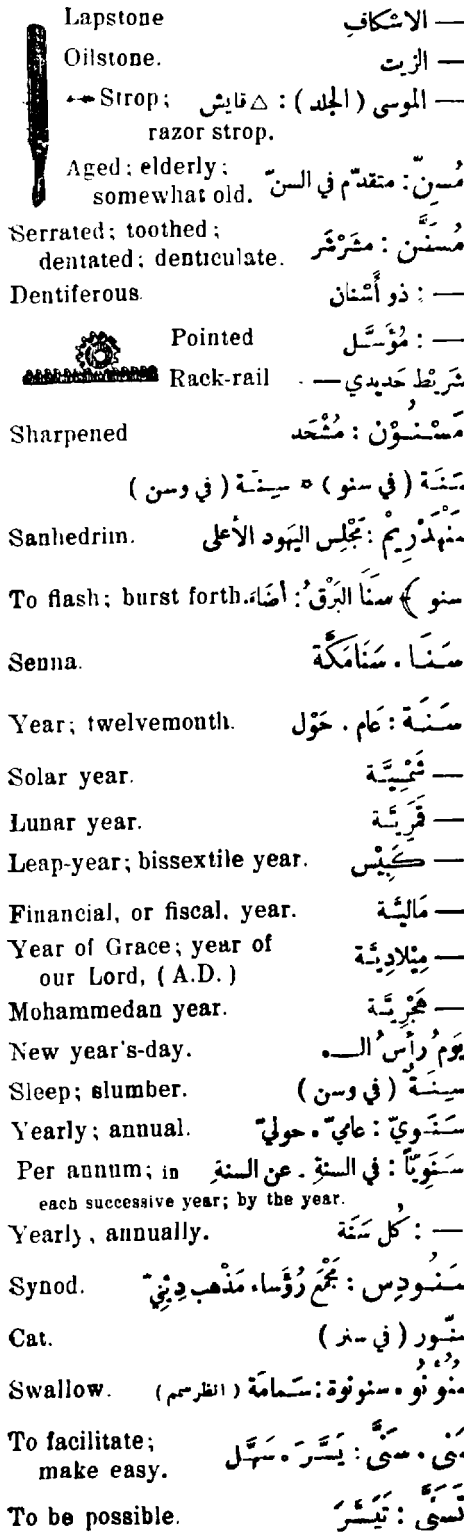 Lapstone — الاسْكافِ
Oilstone. — الزيت
Strop; — الموسى (الجلد) : △ قايش
razor strop.
Aged; elderly; مُسِنّ : متقدّم في السنّ
somewhat old.
Serrated; toothed; مُسَنَّن : مشَرْشَر
dentated; denticulate.
Dentiferous. — : ذو أَسْنان
Pointed — : مُؤَسَّل
Rack-rail شَريْط حَديدي —
Sharpened مَسْنُوْن : مُشْحَد
سَنَة (في سنو) ۞ سِنَة (في وسن)
Sanhedrim. سَنْهَدْرِيمْ : مَجْلِس اليَهود الأعلى
To flash; burst forth. سنو ﴾ سَنَا البَرْقُ : أضَاءَ
Senna. سَنَا . سَنَامَكَّة
Year; twelvemonth. سَنَة : عَام . حَوْل
Solar year. — شَمْسِيَّة
Lunar year. — قَمَرِيَّة
Leap-year; bissextile year. — كَبِيْس
Financial, or fiscal, year. — مَاليَّة
Year of Grace; year of — مِيْلادِيَّة
our Lord, (A.D.)
Mohammedan year. — هِجْرِيَّة
New year's-day. يَوْمُ رأسُ الـ —
Sleep; slumber. سِنَةٌ (في وسن)
Yearly; annual. سَنَوِيّ : عاميّ . حوليّ
Per annum; in سَنَوِيّاً : في السنةِ . عن السنةِ
each successive year; by the year.
Yearly, annually. — : كُل سَنَة
Synod. سَنُودِس : مَجْمَع رُؤَساء مَذْهب دِيْنِيّ
Cat. سِنَّور (في سنر)
Swallow. سُنُونُو . سنونوة : سَمامَة (انظر سمم)
To facilitate; سَنى . سَنَّى : يَسَّرَ . سَهَّل
make easy.
To be possible. تَسَنَّى : تَيَسَّرَ